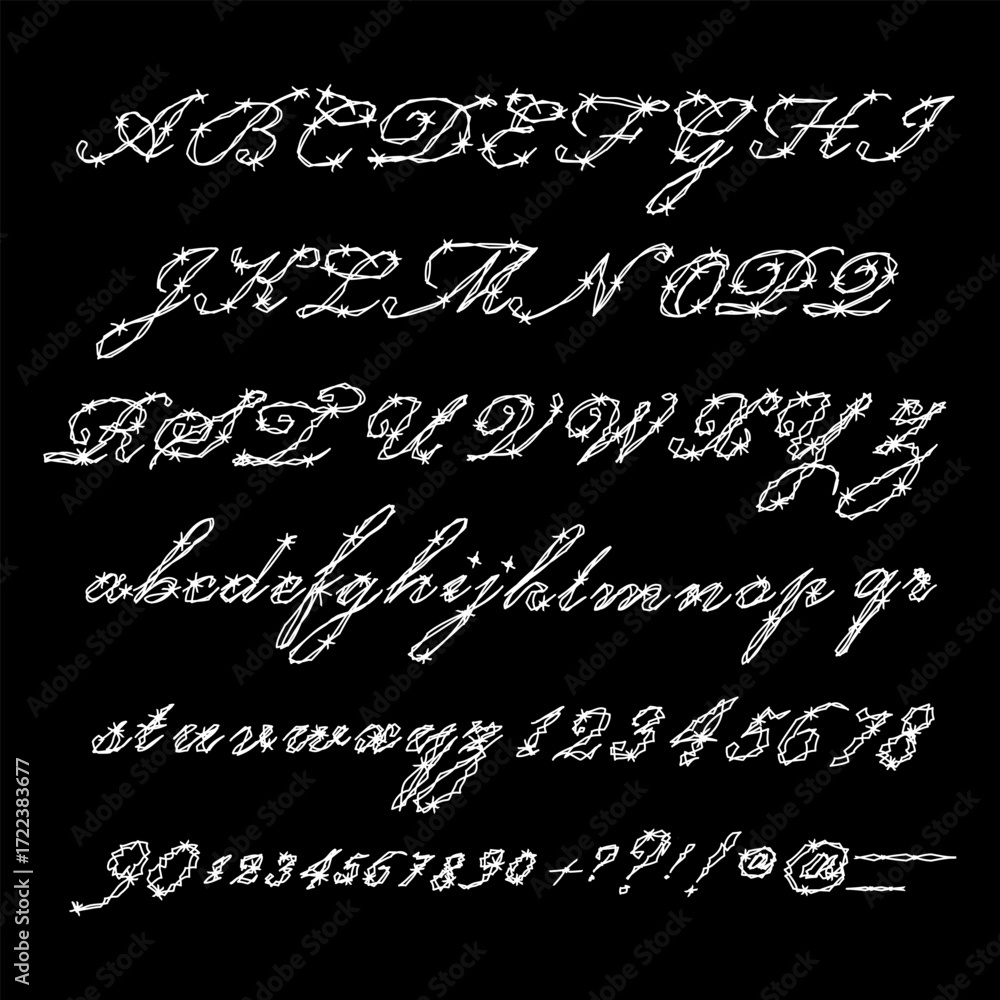 A B C D E F G H I
J K L M N O P Q
R S T U V W X Y Z
a b c d e f g h i j k l m n o p q r
s t u v w x y z 1 2 3 4 5 6 7 8
9 0 1 2 3 4 5 6 7 8 9 0 + ? ? ! ! @ @ — -
Adobe Stock | #1722383677